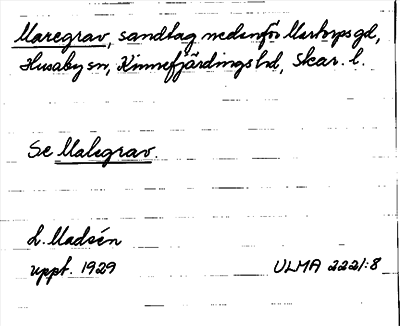 Maregrav, sandtag nedanför Martorps gd,
Husaby sn, Kinnefjärdings hd, Skar. l.
Se Malsgrav.
L. Madsén
uppt. 1929 ULMA 2221:8